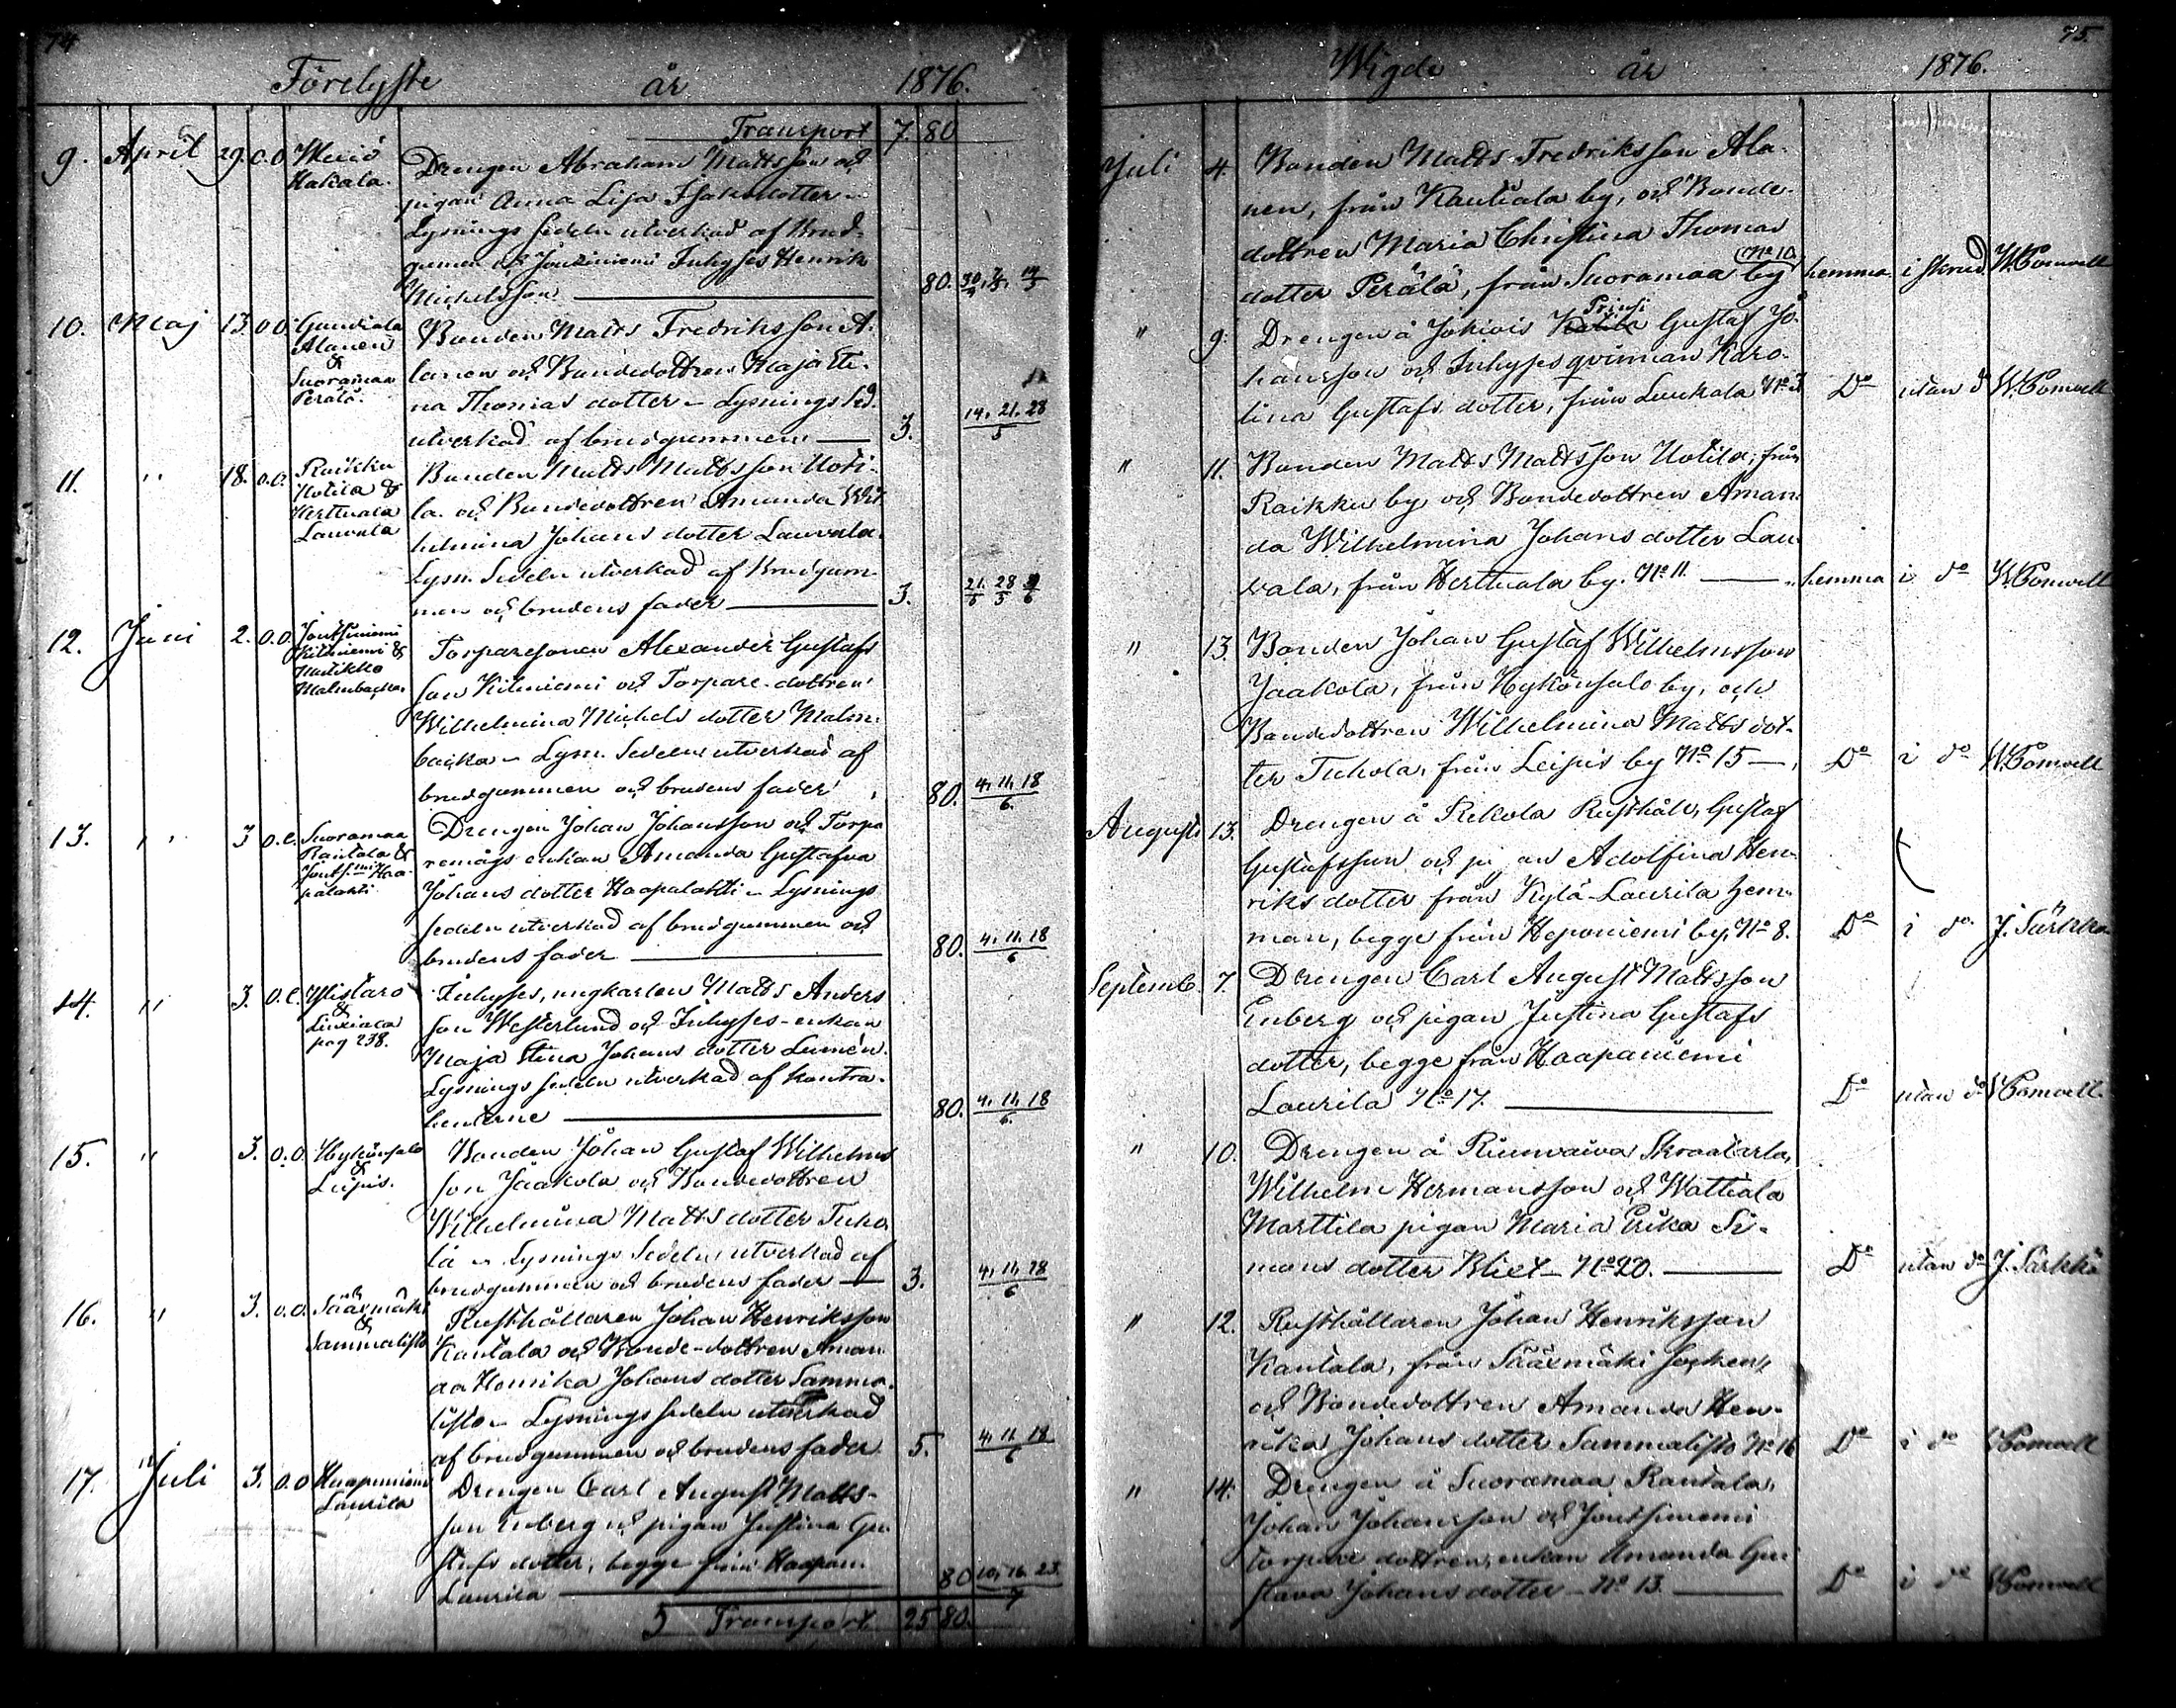 74
Förelyste år 1876.
Transport 7. 80
9. April 29. O.O.
Hakala.
Drengen Abraham Mattsson och
pigan Anna Lisa Isaksdotter -
Lysnings sedeln utverkad af Brud-
gumen och Inhyses Henrik
Michelsson 80. 30/4. 7/5. 14/5
10. Maj 13. O.O.
Alanen
&
Suoramaa
Perälä.
Bonden Matts Fredriksson A-
lanen och Bondedottren Maja Sti-
na Thomas dotter - Lysnings sed.
utverkad af brudgummen 3. 14. 21. 28/5
11. " 18. O.O.
Raikku
Uotila &
Herttuala
Lauvala
Bonden Matts Mattsson Uoti-
la och Bondedottren Amanda Wil-
helmina Johans dotter Lauvala.
Lysn. Sedeln utverkad af Brudgum-
men och brudens fader 3. 21/5 28/5 /6
12. Juni 2. O.O.
Joutsiniemi
Kitiniemi &
Malmbacka.
Torparesonen Alexander Gustafs
son Kitiniemi och Torpare-dottren
Wilhelmina Michels dotter Malm-
backa - Lysn. Sedeln utverkad af
brudgummen och brudens fader 80. 4. 11. 18/6.
13. " 3 O.O.
Suoramaa
Rantala &
Joutsi-mi Haa-
palahti
Drengen Johan Johansson och Torpa
remågs enkan Amanda Gustafva
Johans dotter Haapalahti - Lysnings
sedeln utverkad af brudgummen och
brudens fader 80. 4. 11. 18/6
14. " 3. O.O.
Ylistaro
&
Liuxiala
pag 238.
Inhyses, ungkarlen Matts Anders
son Westerlund och Inhyses-enkan
Maja Stina Johans dotter Lumén.
Lysnings sedeln utverkad af kontra-
henterne 80. 4. 11. 18/6.
15. " 3. O.O.
Hykönsalo
&
Leipis.
Bonden Johan Gustaf Wilhelms
son Jaakola och Bondedottren
Wilhelmina Matts dotter Tuho
la - Lysnings Sedeln utverkad af
brudgummen och brudens fader 3. 4. 11. 18/6
16. " 3. O.O.
Sääxmäki
&
Sammalisto
Rusthållaren Johan Henriksson
Kantala och Bonde-dottren Aman
da Henrika Johans dotter Samma-
listo - Lysnings sedeln utverkad
af brudgummen och brudens fader 5. 4. 11. 18/6
17. Juli 3. O.O.
Haapaniemi
Laurila
Drengen Carl August Matts-
son Enberg och pigan Justina Gu
stafs dotter, begge från Haapan.
Laurila 80 16. 23/7
Transport 25 80.
75.
Wigde år 1876.
Juli 4. Bonden Matts Fredriksson Ala-
nen, från by, och Bonde-
dottren Maria Christina Thomas
dotter Perälä, från Suoramaa by No 10 hemma i skrud W. Pomoell
" 9. Drengen å Jokiois Prusi Gustaf Jo-
hansson och Inhyses qvinnan Karo-
lina Gustafs dotter, från Laukala No 3 Do utan do W. Pomoell
" 11. Bonden Matts Mattsson Uotila, från
Raikku by och Bondedottren Aman-
da Wilhelmina Johans dotter Lau-
vala, från Herttuala by. No 11. hemma i do W. Pomoell
" 13. Bonden Johan Gustaf Wilhelmsson
Jaakola, från Hykönsalo by, och
Bondedottren Wilhelmina Matts dot-
ter Tuhola, från Leipis by No 15 Do i do W. Pomoell
Augusti 13. Drengen å Rekola Rusthåll, Gustaf
Gustafsson och pigan Adolfina Hen-
riks dotter från Kylä-Laurila hem-
man, begge från Heponiemi by. No 8. Do i do J. Särkkä
Septemb. 7. Drengen Carl August Mattsson
Enberg och pigan Justina Gustafs
dotter, begge från Haapaniemi
Laurila No 17. Do utan do W. Pomoell.
" 10. Drengen å Riunvaiva Skraatarla,
Wilhelm Hermansson och Wattiala
Marttila pigan Maria Erika Si-
mons dotter Blixt - No 20. Do utan do J. Särkkä
" 12. Rusthållaren Johan Henriksson
Kantala, från Sääxmäki socken,
och Bondedottren Amanda Hen-
rika Johans dotter Sammalisto No 16 Do i do W. Pomoell
" 14. Drengen å Suoramaa Rantala,
Johan Johansson och Joutsiniemi
torpare dottren, enkan Amanda Gu-
stava Johans dotter - No 13. Do i do W. Pomoell